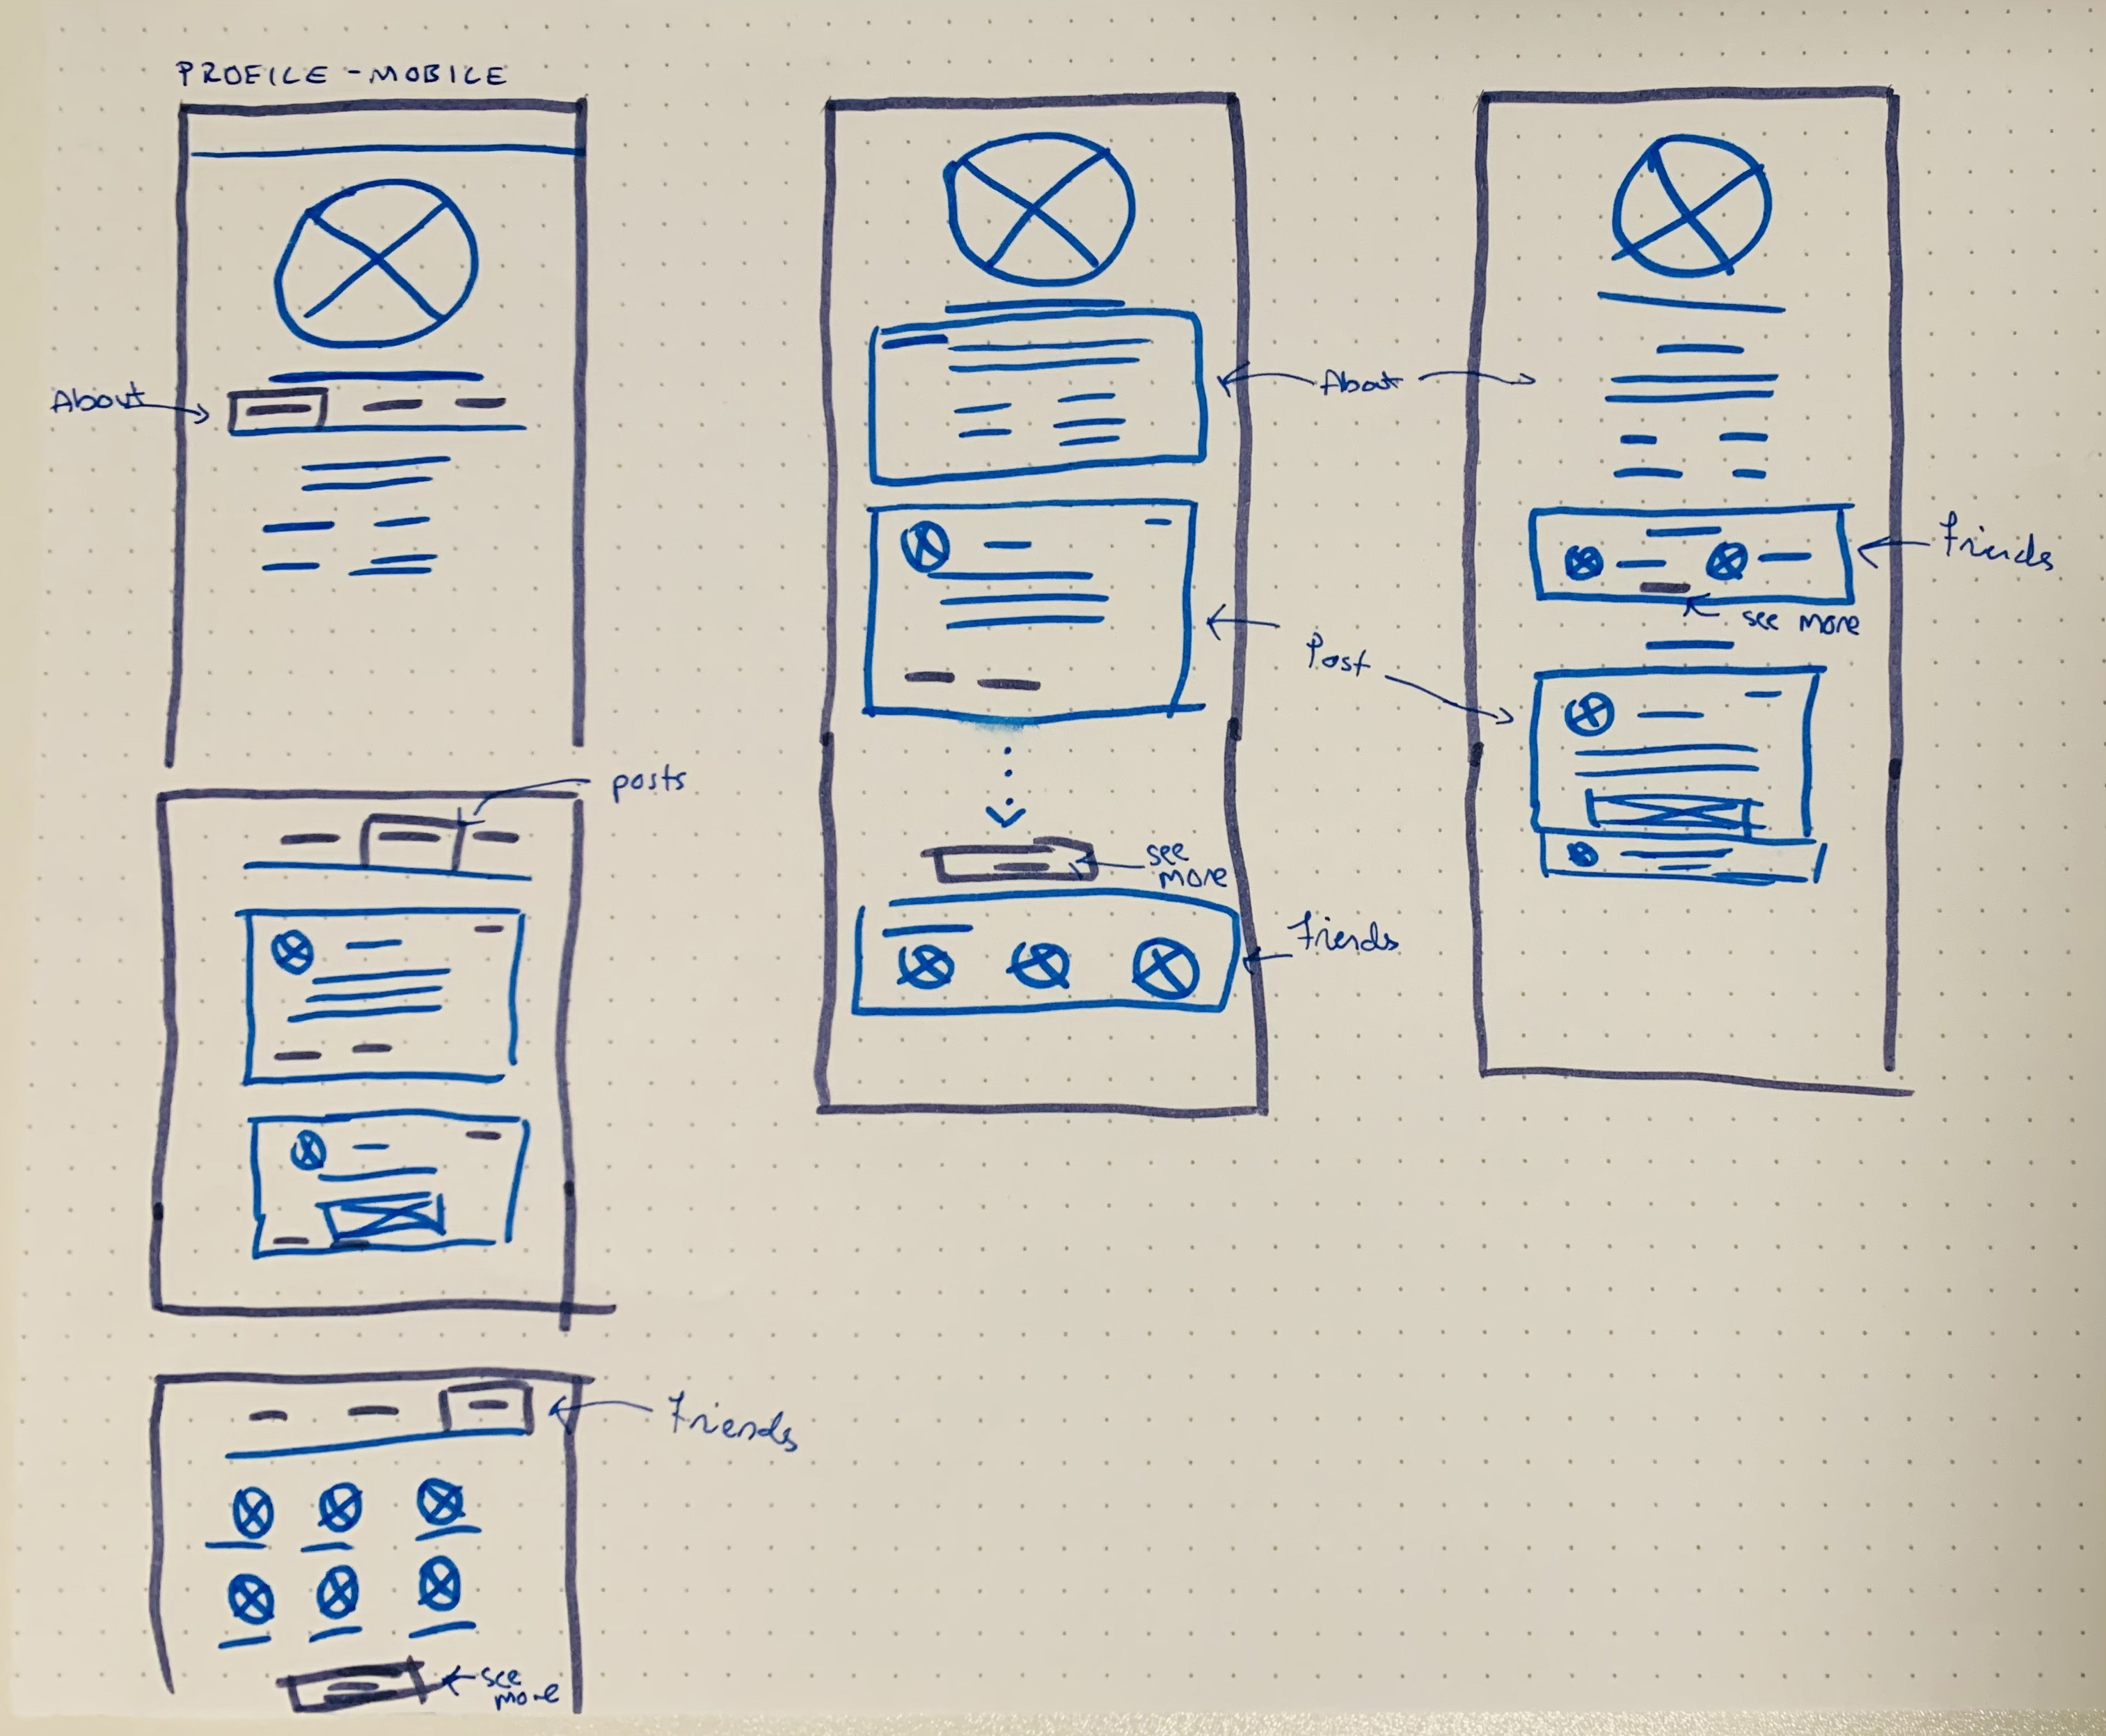 PROFILE - MOBILE
About
posts
Friends
see
more
About
Post
see
more
Friends
Friends
see more